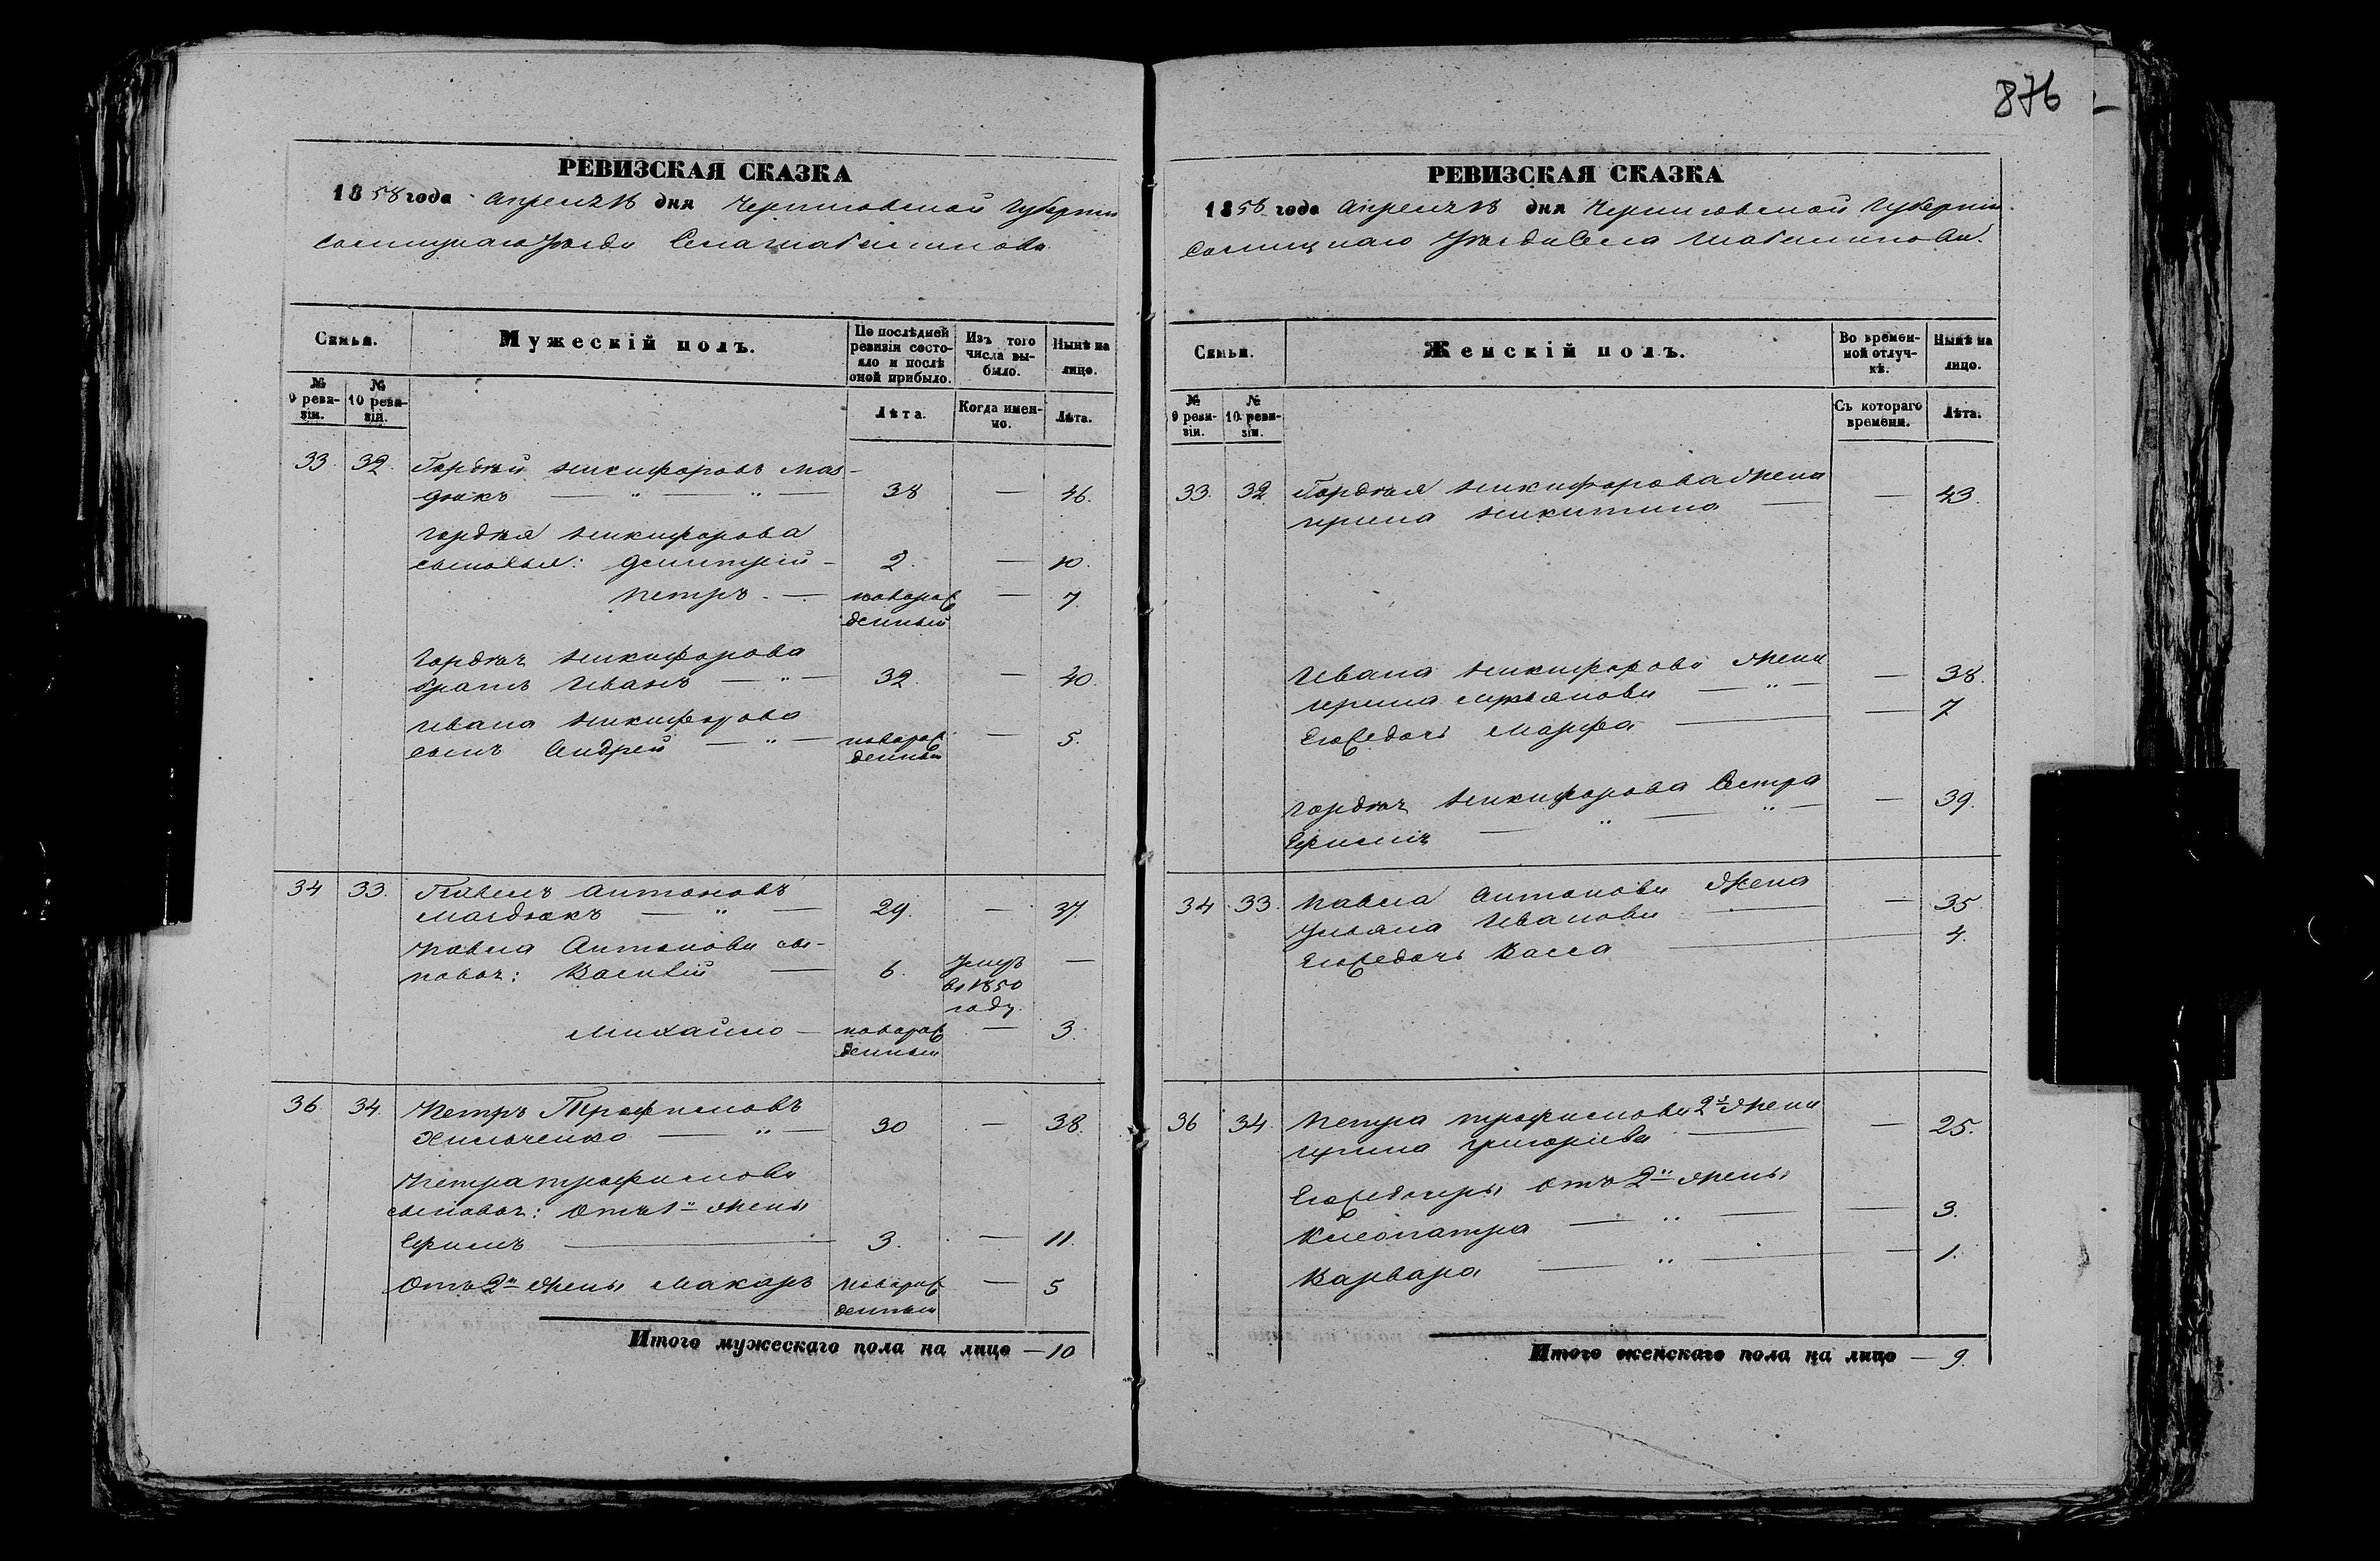 876
РЕВИЗСКАЯ СКАЗКА
1858 года Апреля 18 дня Черниговской Губернии
Сосницкаго Уѣзда Села Шабалинова
Семьи.
Мужескій полъ.
По послѣдней ревизіи состояло и послѣ оной прибыло.
Изъ того числа выбыло.
Нынѣ на лицо.
№ 9 ревизіи.
№ 10 ревизіи.
Лѣта.
Когда именно.
Лѣта.
33. 32. Гордѣй Никифоровъ Маг-
дюкъ — " — " — 38 — 46.
Гордѣя Никифорова
сыновья: Дмитрій — 2. — 10.
Петръ — новорож — 7.
денный
Гордѣя Никифорова
братъ Иванъ — " — 32. — 40.
Ивана Никифорова
сынъ Андрей — " — новорож — 5.
денный
34 33. Павелъ Антоновъ
Магдюкъ — " — 29. — 37.
Павла Антонова сы-
новья: Василій — 6. Умеръ —
въ 1850
году
Михайло — новорож — 3.
денный
36 34. Петръ Трофимовъ
Хильченко — " — 30 — 38.
Петра Трофимова
сыновья: Отъ 1й жены
Ефимъ — 3. — 11.
Отъ 2й жены Макаръ новорож — 5
денный
Итого мужескаго пола на лицо — 10
РЕВИЗСКАЯ СКАЗКА
1858 года Апреля 18 дня Черниговской Губерніи.
Сосницкаго Уѣзда Села Шабалинова.
Семьи.
Женскій полъ.
Во временной отлучкѣ.
Нынѣ на лицо.
№ 9 ревизіи.
№ 10 ревизіи.
Съ котораго времени.
Лѣта.
33. 32 Гордѣя Никифорова жена
Ирина Никитина — — 43.
Ивана Никифорова жена
Ирина — " — — 38.
Егожъ дочь Марфа — — 7
Гордѣя Никифорова Сестра
— " — " — — 39.
34 33. Павла Антонова жена
Ульяна Иванова — — 35
Егожъ дочь Васса — 4.
36 34. Петра Трофимова 2я жена
Ирина Григорьева — — 25.
Егожъ дочери отъ 2й жены
Клеопатра — " — — 3.
Варвара — " — — 1.
Итого женскаго пола на лицо — 9.